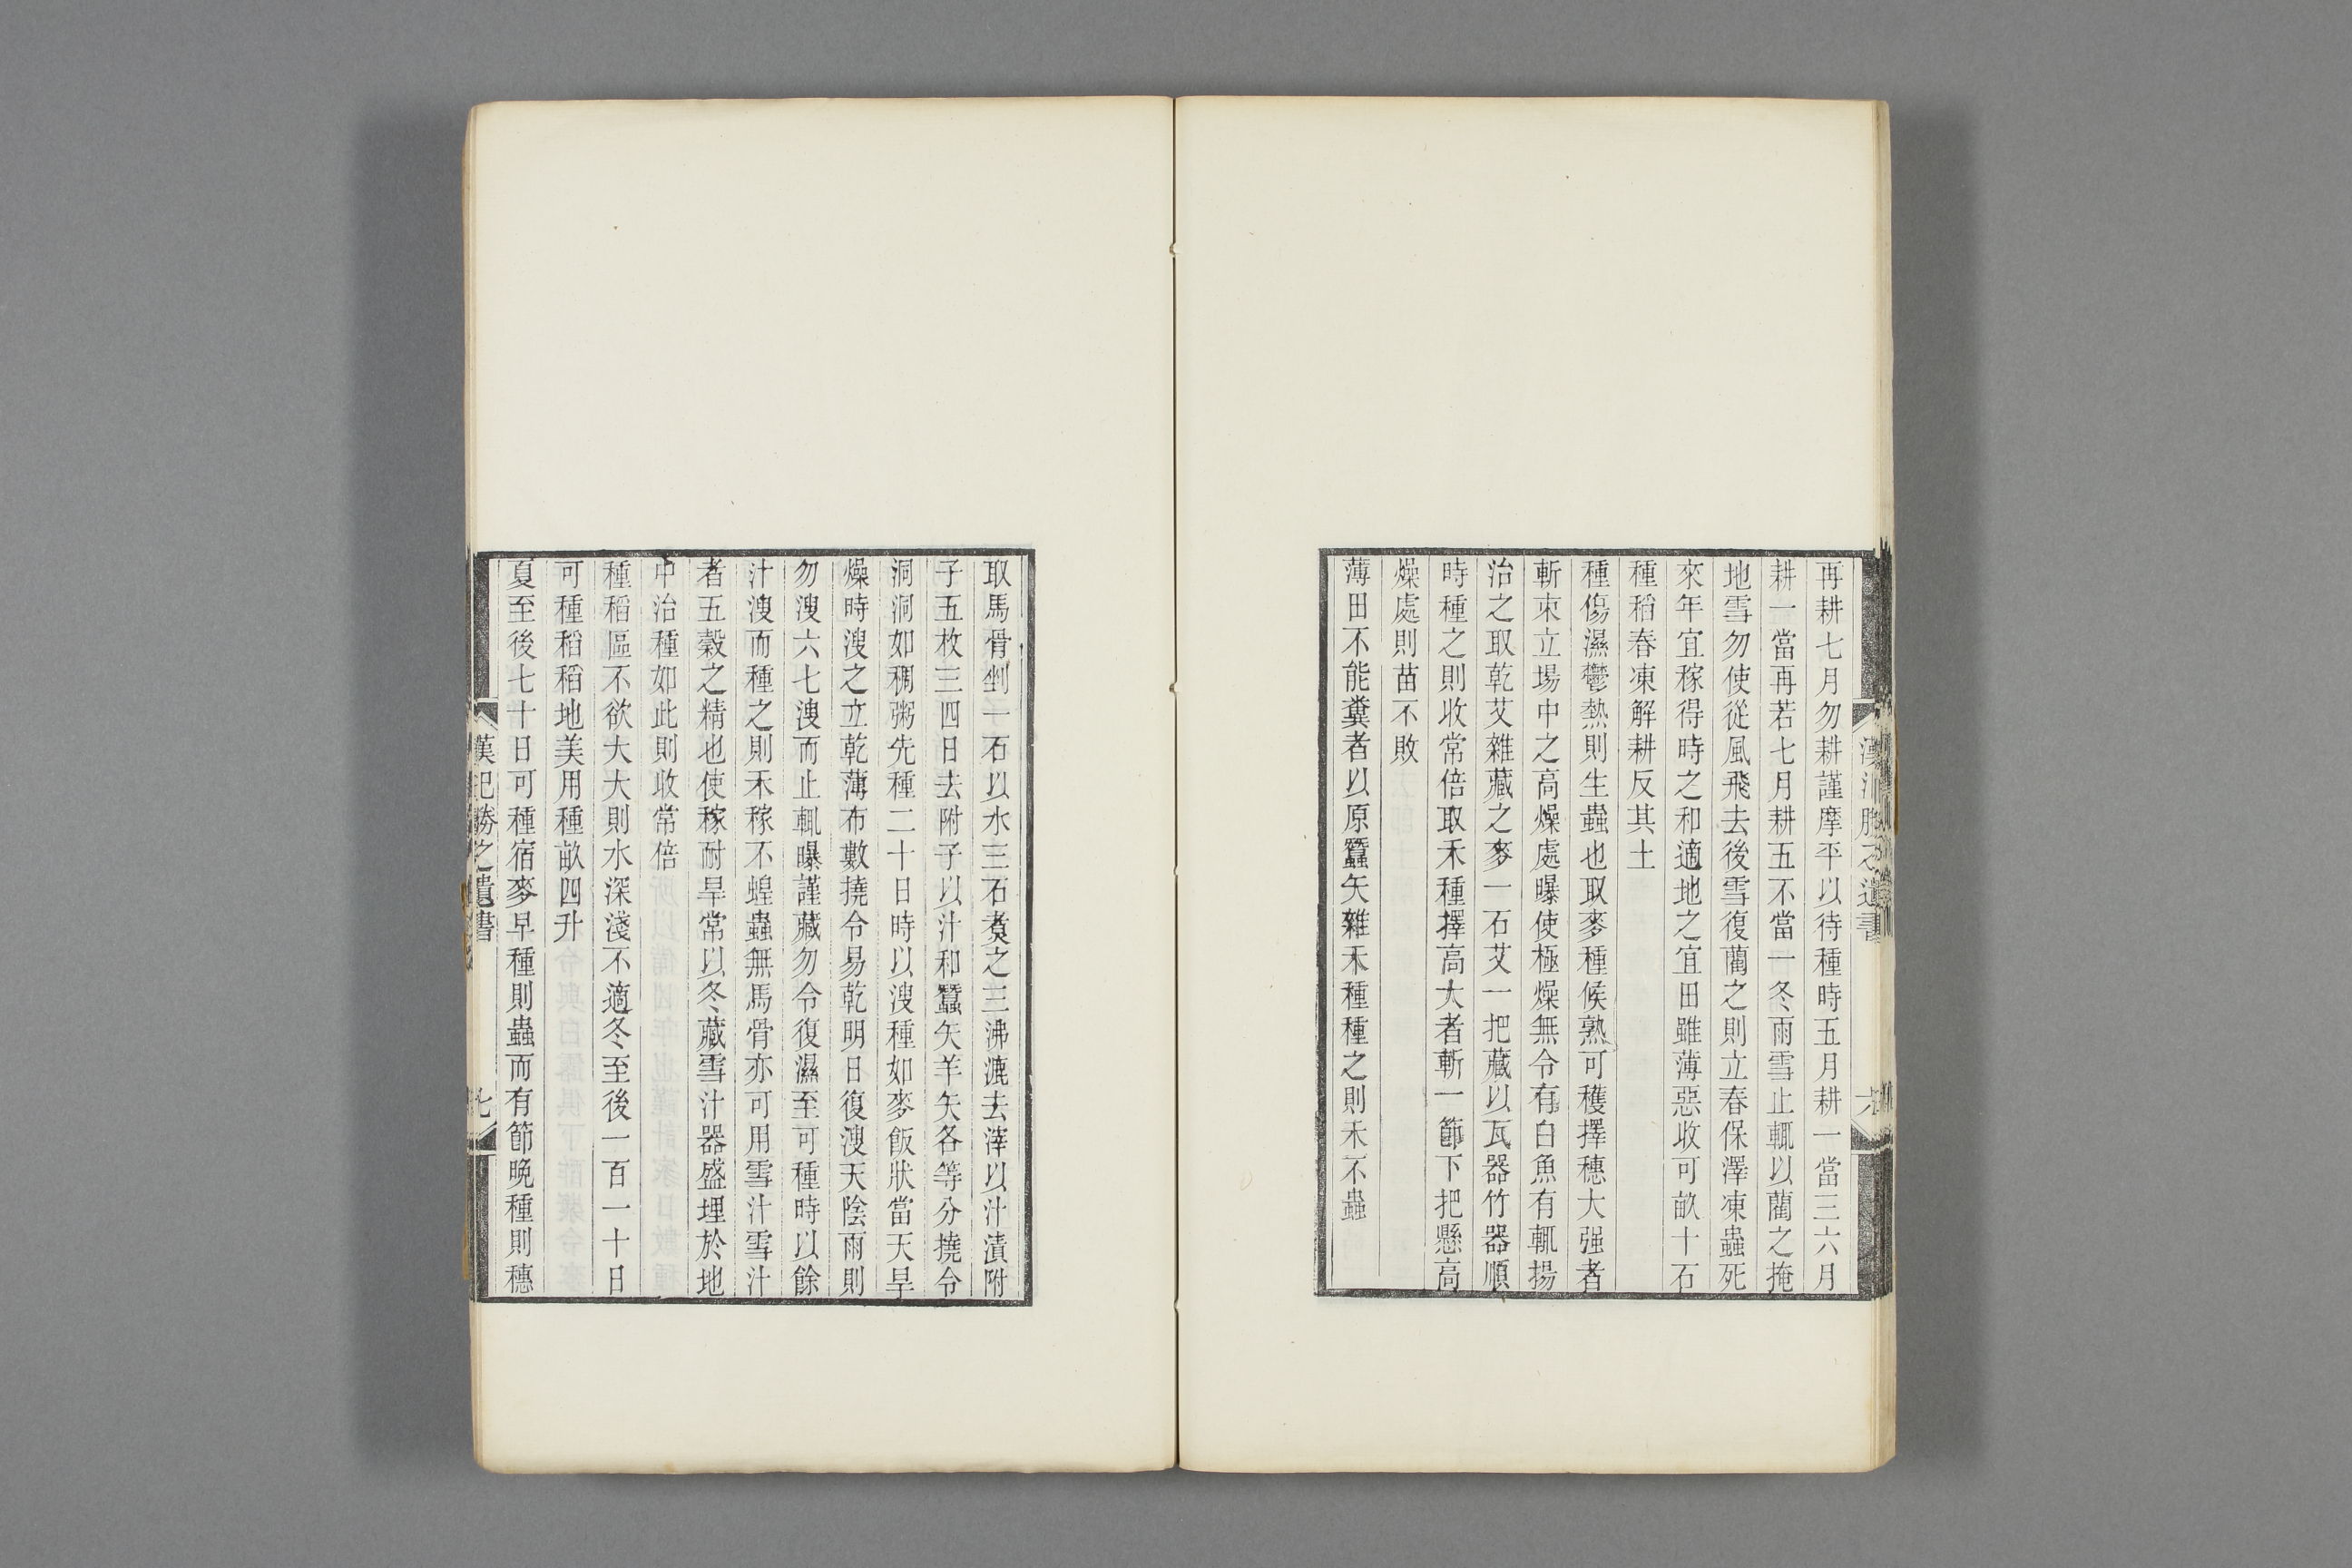 再耕七月勿耕謹摩平以待種時五月耕一當三六月
耕一當再若七月耕五不當一冬雨雪止輒以藺之掩
地雪勿使從風飛去後雪復藺之則立春保澤凍蟲死
來年宜稼得時之和適地之宜田雖薄惡收可畝十石
種稻春凍解耕反其土
種傷濕鬱熱則生蟲也取麥種候熟可穫擇穗大强者
斬束立場中之高燥處曝使極燥無令有白魚有輒揚
治之取乾艾雜藏之麥一石艾一把藏以瓦器竹器順
時種之則收常倍取禾種擇高大者斬一節下把懸高
燥處則苗不敗
薄田不能糞者以原蠶矢雜禾種種之則禾不蟲
漢氾勝之遺書
六
取馬骨剉一石以水三石煮之三沸漉去滓以汁漬附
子五枚三四日去附子以汁和蠶矢羊矢各等分撓令
洞洞如稠粥先種二十日時以溲種如麥飯狀當天旱
燥時溲之立乾薄布數撓令易乾明日復溲天陰雨則
勿溲六七溲而止輒曝謹藏勿令復濕至可種時以餘
汁溲而種之則禾稼不蝗蟲無馬骨亦可用雪汁雪汁
者五穀之精也使稼耐旱常以冬藏雪汁器盛埋於地
中治種如此則收常倍
種稻區不欲大大則水深淺不適冬至後一百一十日
可種稻稻地美用種畝四升
夏至後七十日可種宿麥早種則蟲而有節晚種則穗
漢氾勝之遺書
七